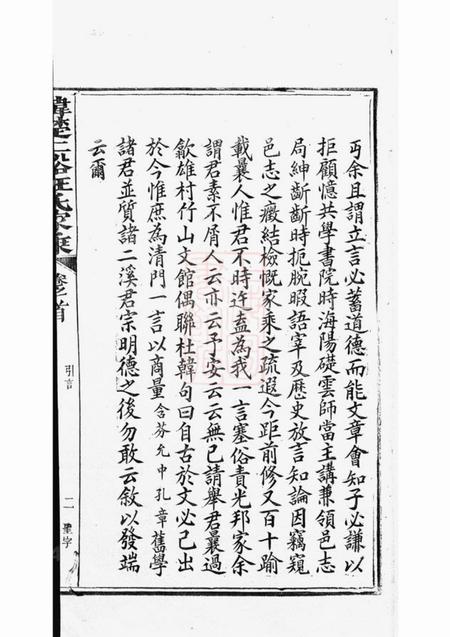 丐余且謂立言必蓄道德而能文章會知子必謙以
拒顧憶共學書院時海陽礎雲師當主講兼領邑志
局紳斷斷時扼腕暇語宰及歷史放言知論因竊窺
邑志之癥結檢慨家乘之疏遐今距前修又百十踰
載曩人惟君不時許盍為我一言塞俗責光邦家余
謂君素不屑人云亦云予妄云云無已請舉君曩過
歙雄村竹山文館偶聯杜韓句曰自古於文必己出
於今惟庶為清門一言以商量含芬允中孔章舊學
諸君並質諸二溪君宗明德之後勿敢云敘以發端
云爾
汪氏家乘
卷之首
引言
二